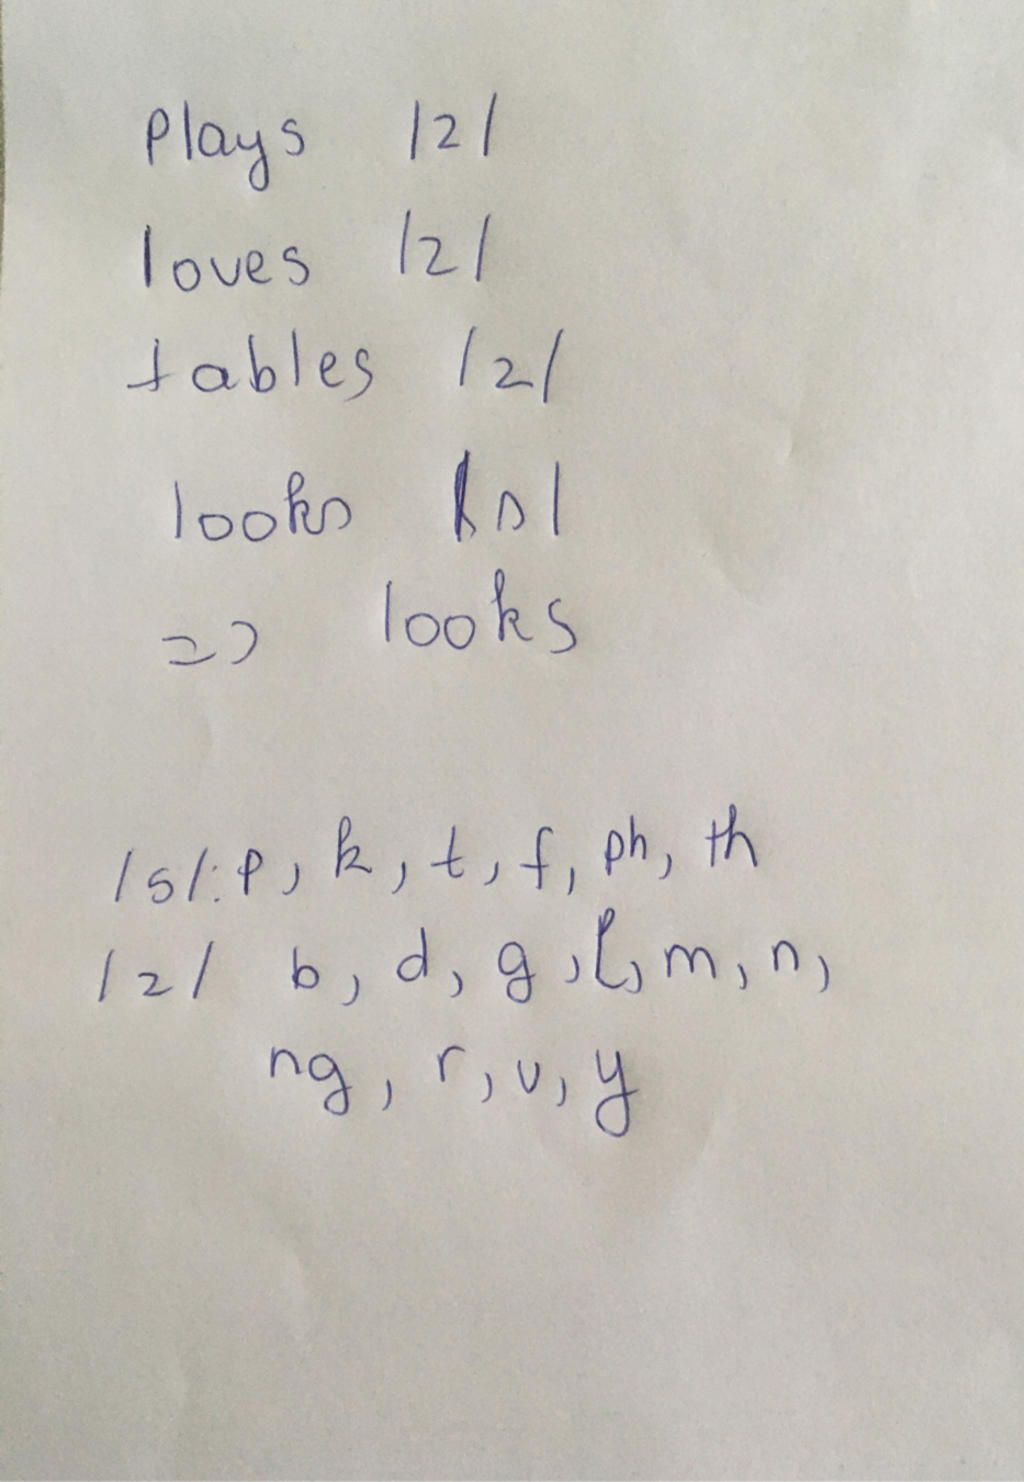 Plays /z/
loves /z/
tables /z/
looks /s/
=> looks
/s/: p, k, t, f, ph, th
/z/ b, d, g, l, m, n,
ng, r, v, y